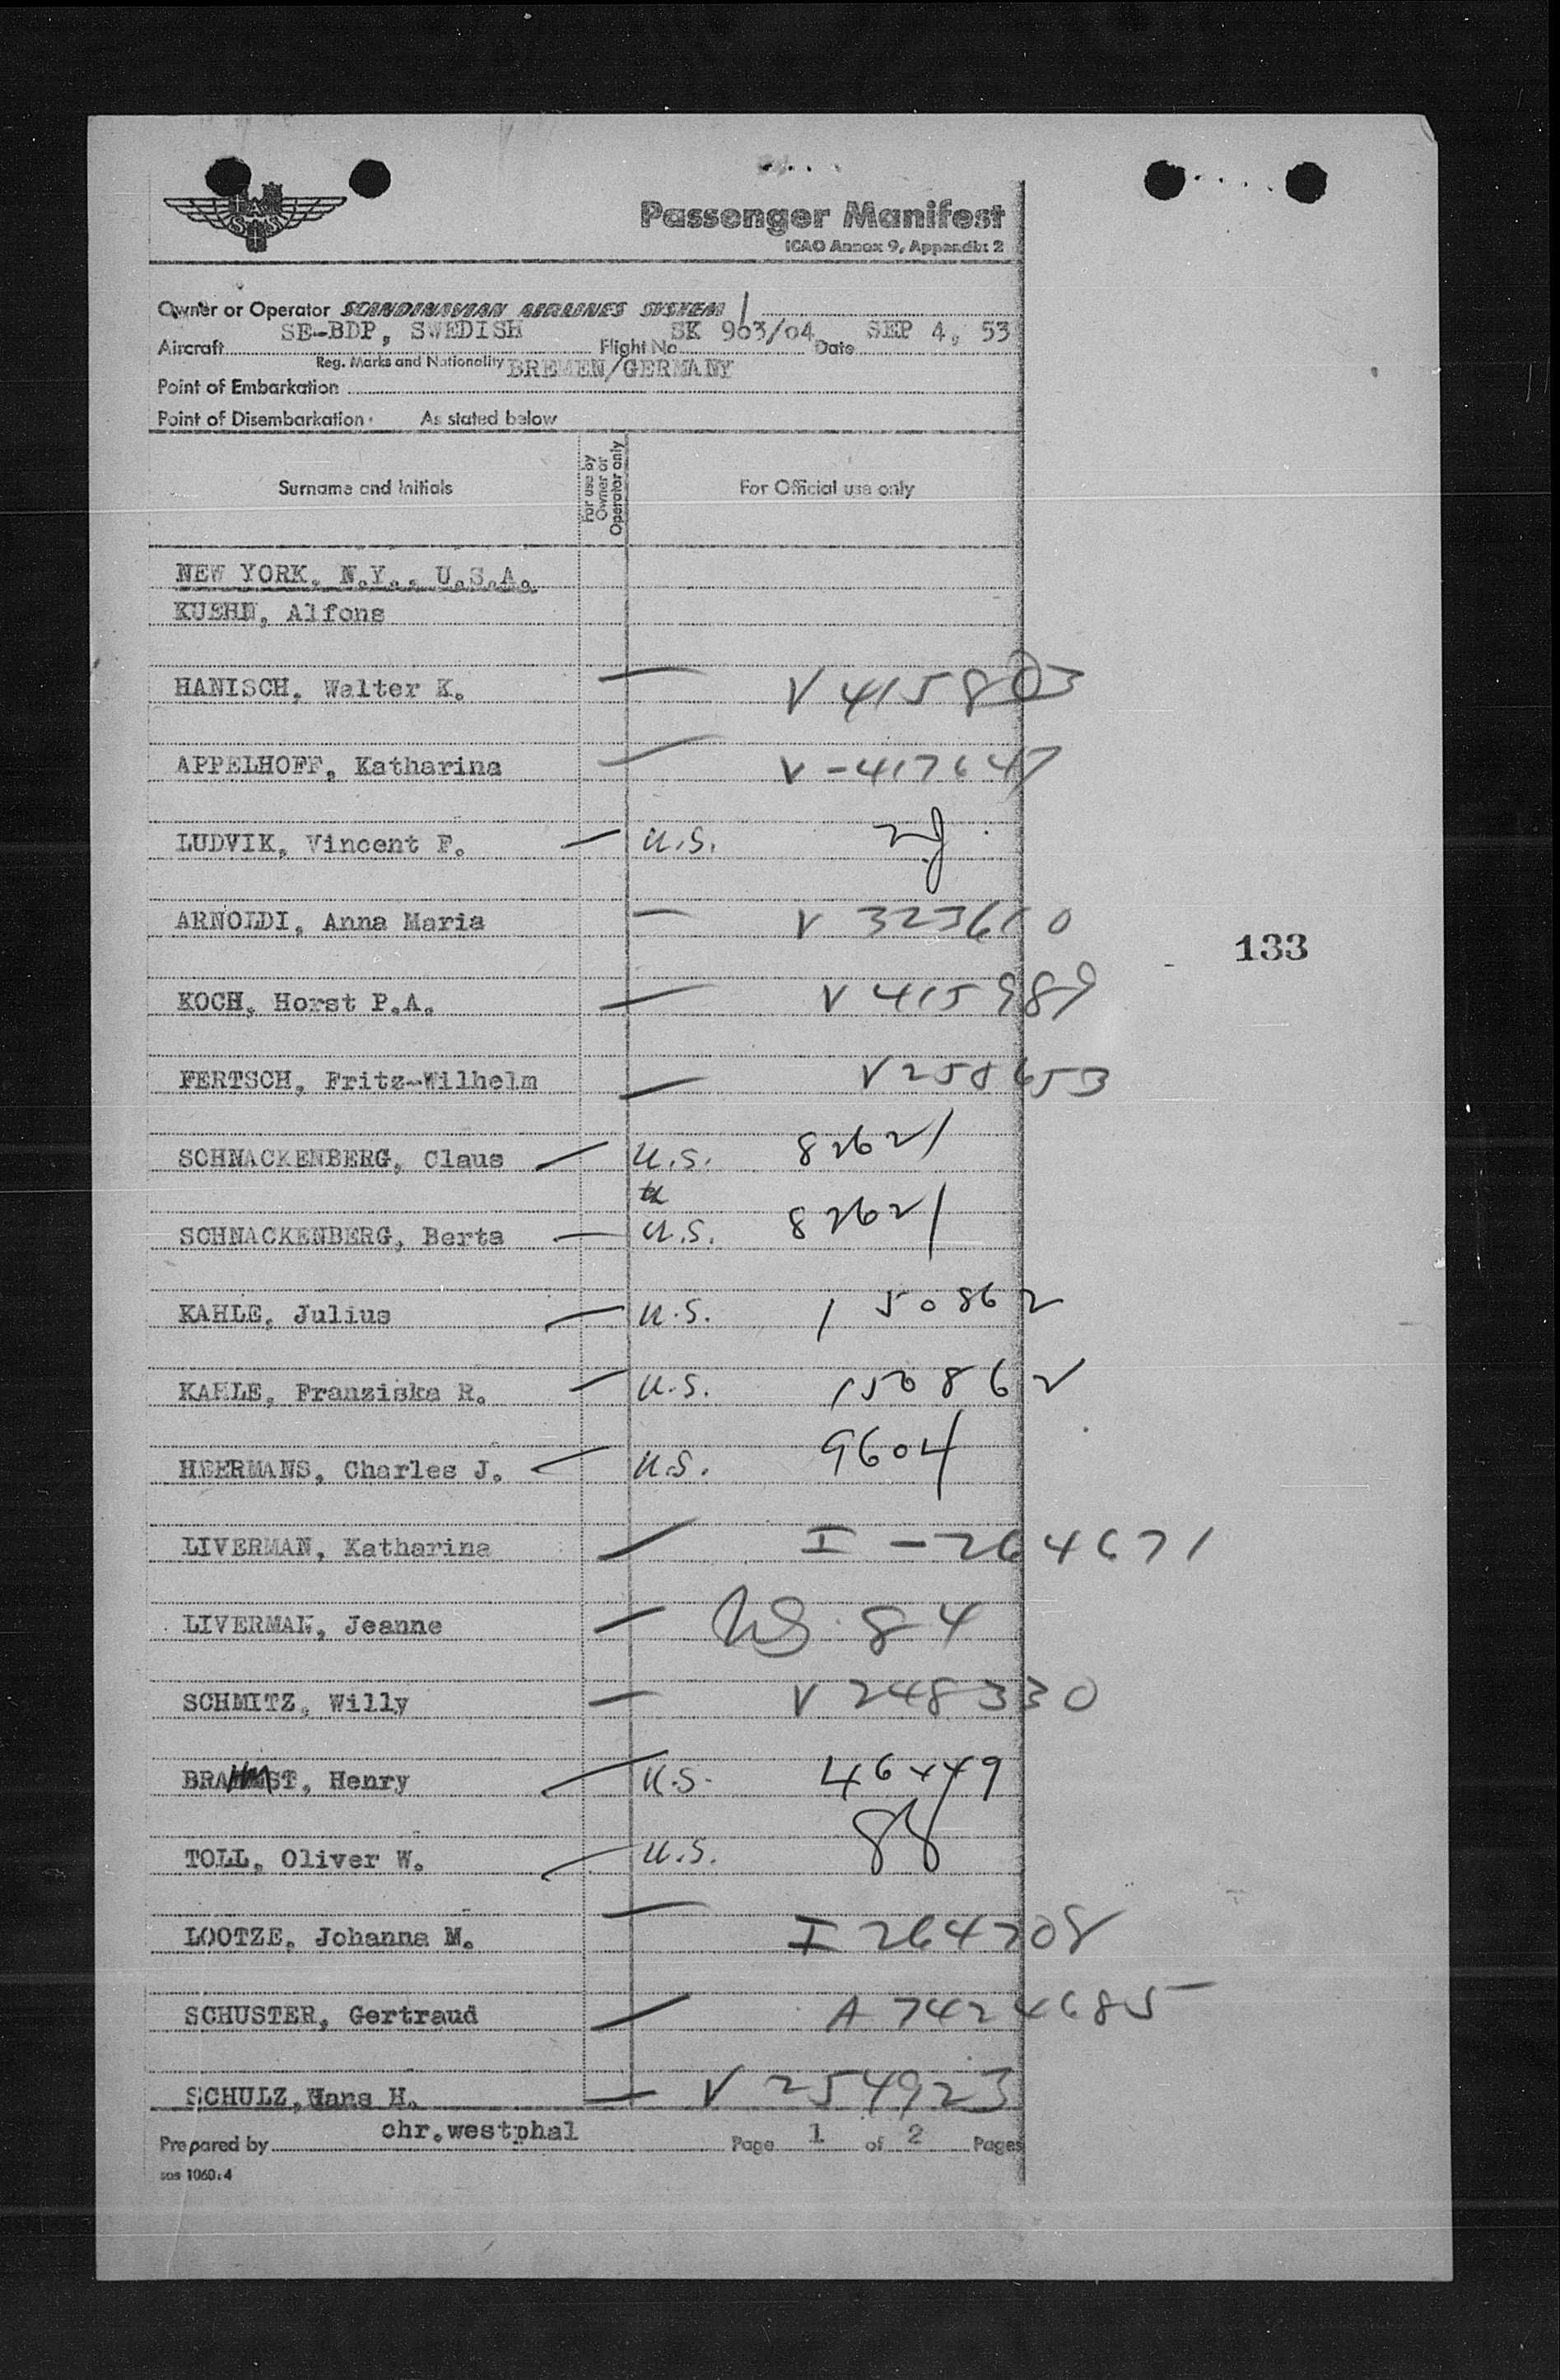 SAS
Passenger Manifest
ICAO Annex 9, Appendix 2
Owner or Operator SCANDINAVIAN AIRLINES SYSTEM
Aircraft SE-BDP, SWEDISH Flight No SK 903/04 Date SEP 4, 53
Reg. Marks and Nationality
Point of Embarkation BREMEN/GERMANY
Point of Disembarkation · As stated below
Surname and Initials For use by Owner or Operator only For Official use only
NEW YORK, N.Y., U.S.A.
KUEHN, Alfons
HANISCH, Walter K. — V 415803
APPELHOFF, Katharina — V-417647
LUDVIK, Vincent F. — U.S.
ARNOLDI, Anna Maria — V 323610
KOCH, Horst P.A. — V 415989
FERTSCH, Fritz-Wilhelm — V 258653
SCHNACKENBERG, Claus — U.S. 82621
SCHNACKENBERG, Berta — U.S. 82621
KAHLE, Julius — U.S. 150862
KAHLE, Franziska R. — U.S. 150862
HEERMANS, Charles J. — U.S. 9604
LIVERMAN, Katharina — I-264671
LIVERMAN, Jeanne — US 84
SCHMITZ, Willy — V 248330
133
BRAHMST, Henry — U.S.
TOLL, Oliver W. — U.S. 88
LOOTZE, Johanna M. — I 264708
SCHUSTER, Gertraud — A 7424685
SCHULZ, Hans H. — V 254923
Prepared by chr.westphal Page 1 of 2 Pages
sas 1060:4